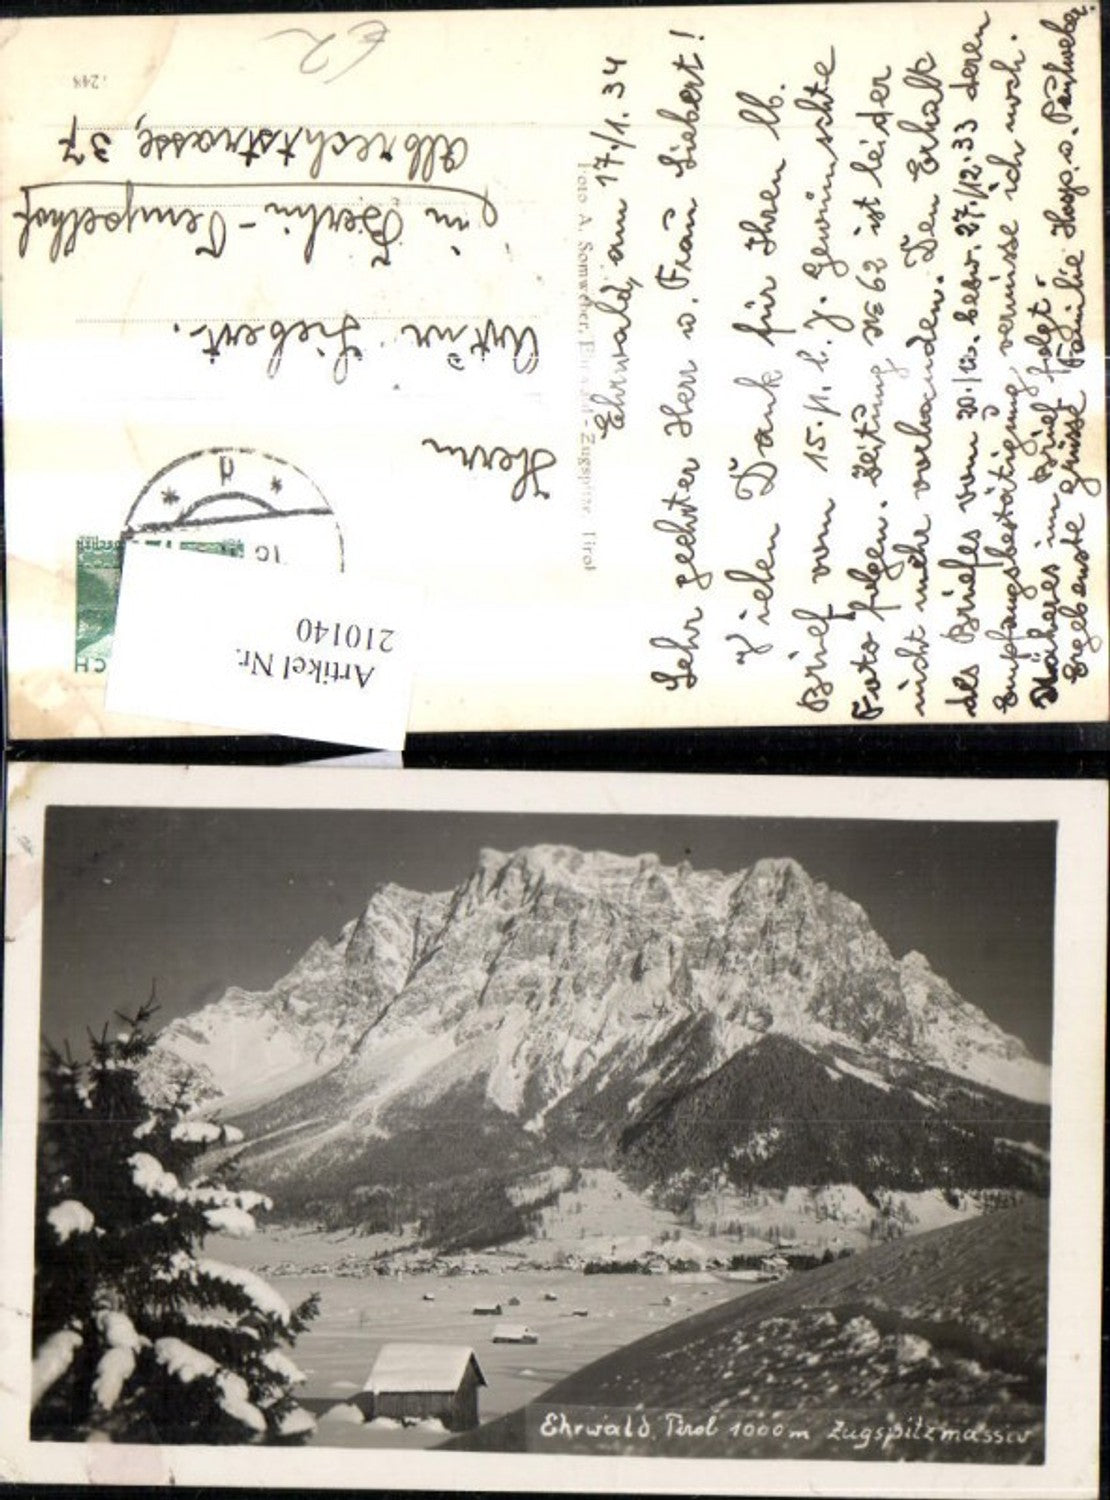 Ehrwald, am 17./1.34
Sehr geehrter Herr u. Frau Siebert!
Vielen Dank für Ihren lb.
Brief vom 15./1. l. J. Gewünschte
Foto folgen. Zeitung № 62 ist leider
nicht mehr vorhanden. Den Erhalt
des Briefes vom 20./12. besw. 27./12.33 deren
Empfangsbestätigung, vermisse ich noch.
Näheres im Brief folgt.
Ergebenste Grüsse Familie
Foto A. Somweber, Ehrwald - Zugspitze, Tirol
Herrn
Artur Siebert.
in Berlin-Tempelhof
Albrechtstrasse, 37
248
€2
Artikel Nr.
210140
Ehrwald, Tirol 1000m Zugspitzmassiv